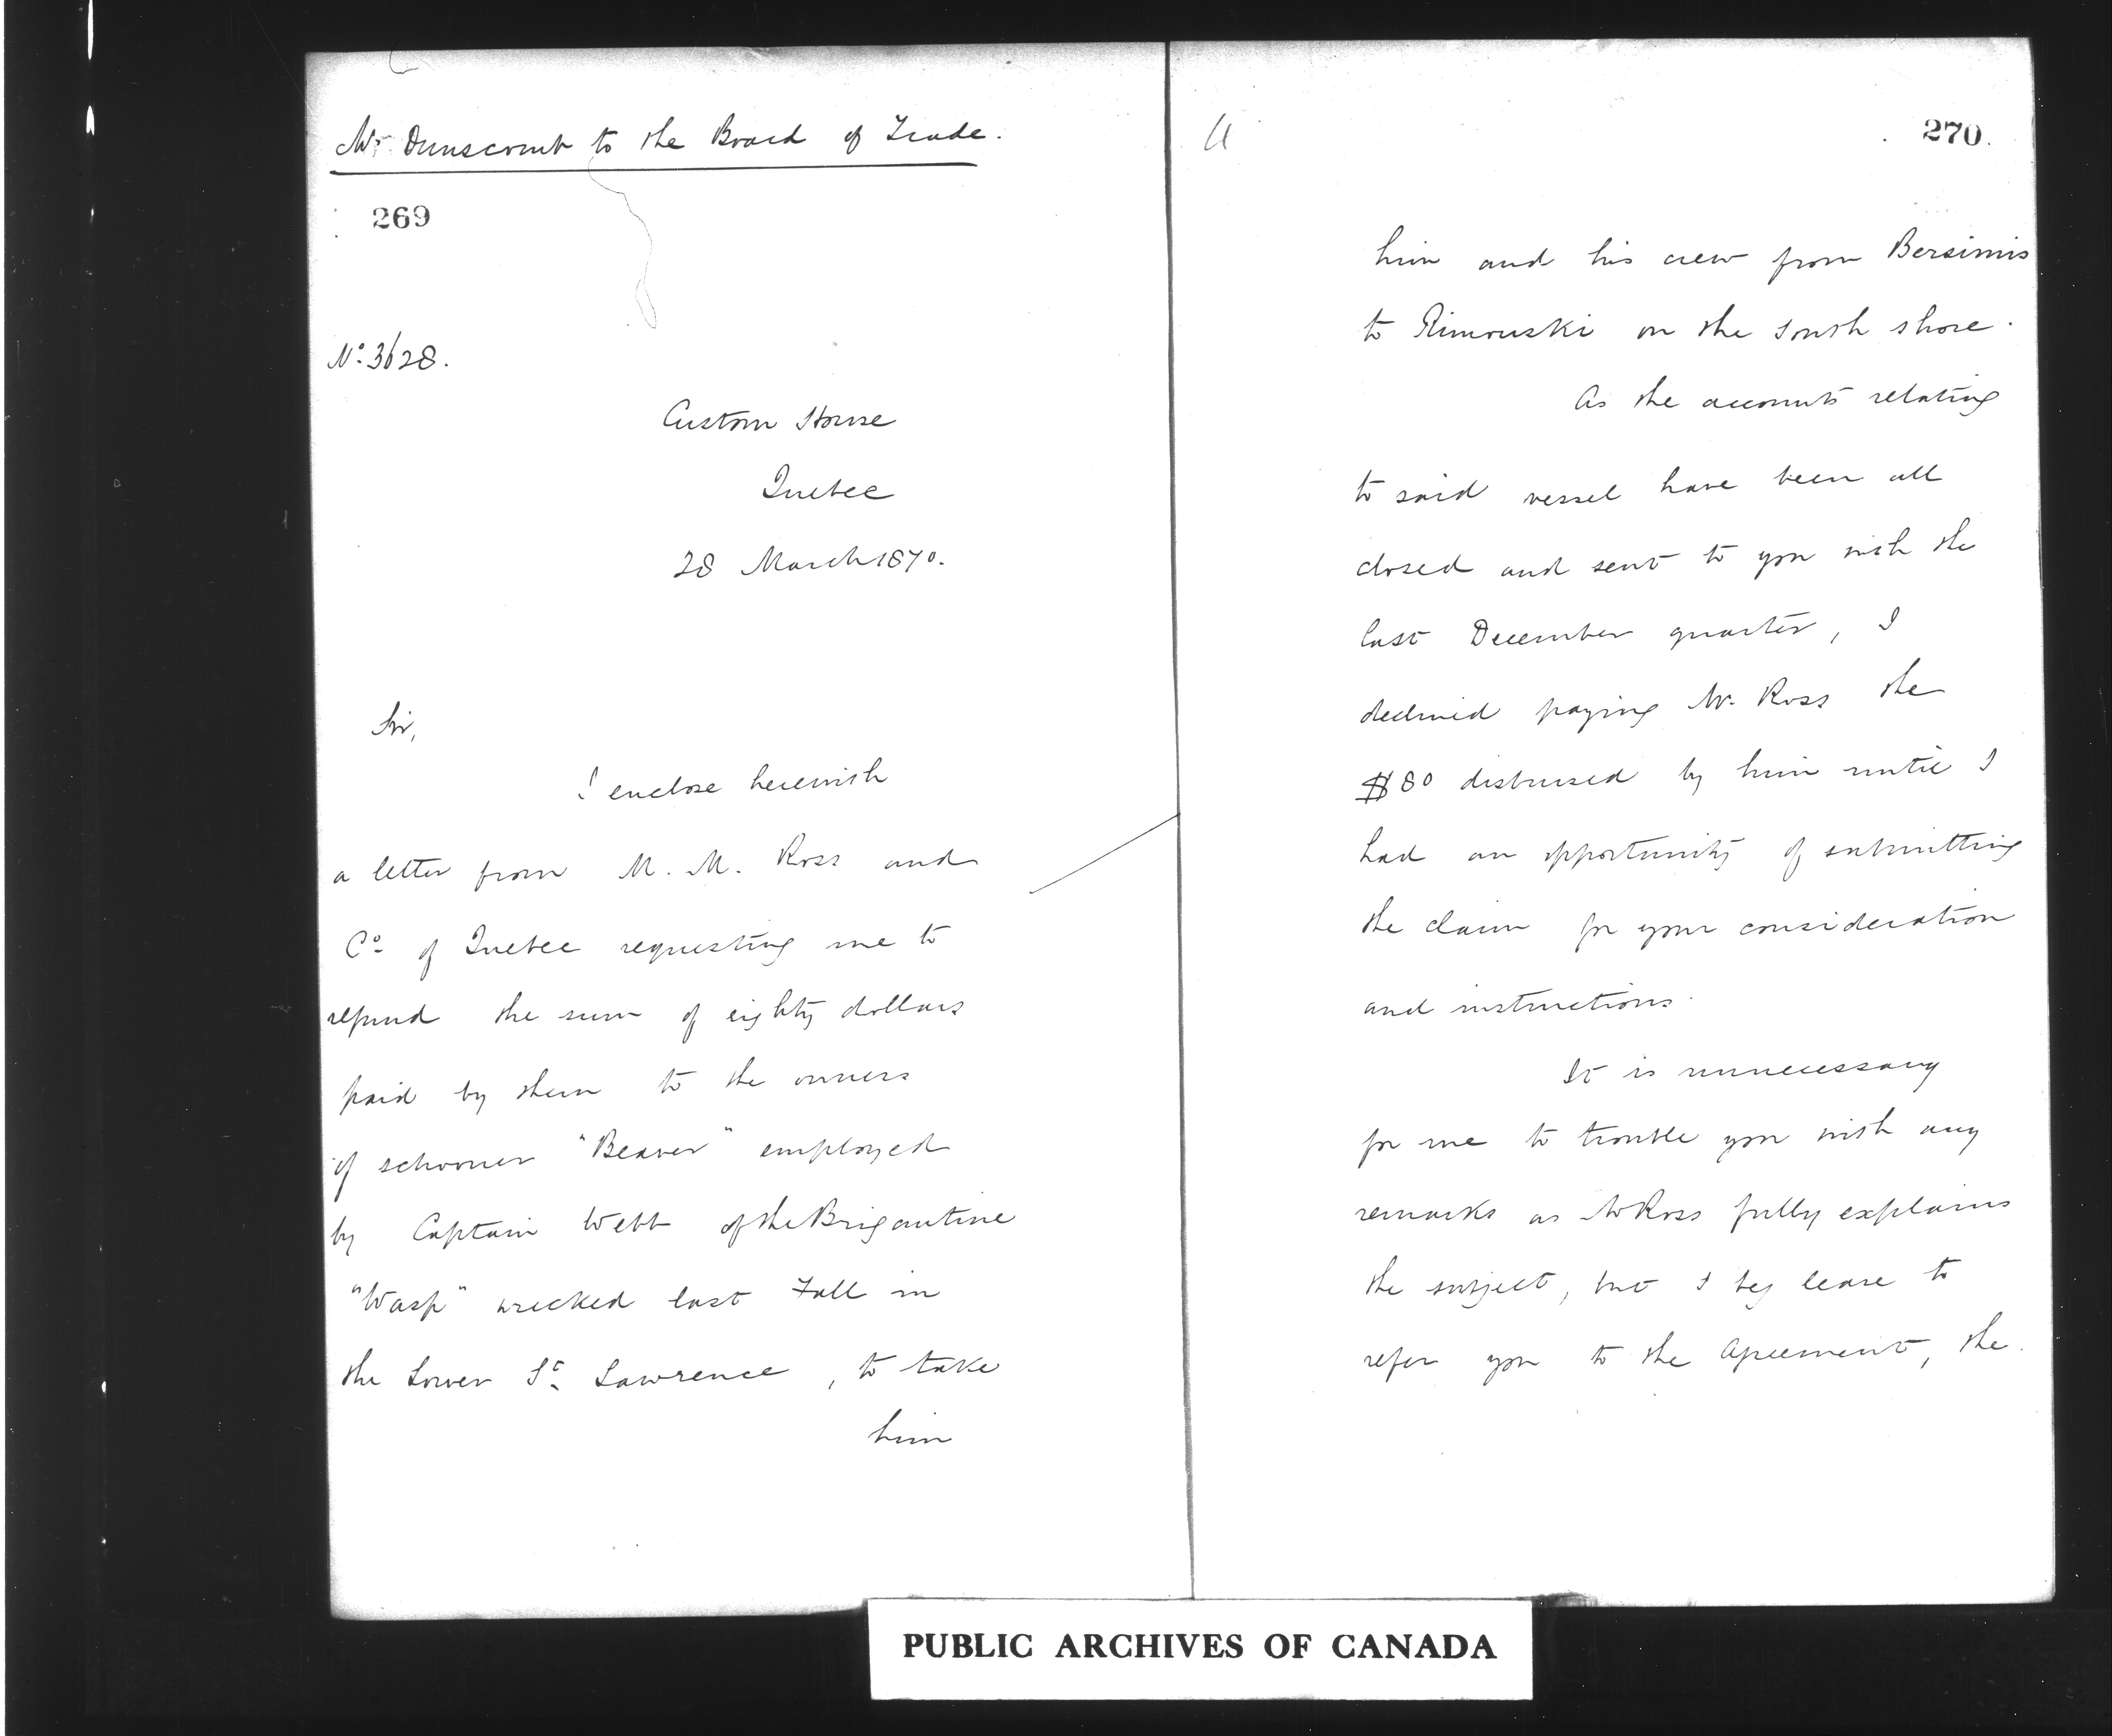 Mr Dunscomb to the Board of Trade.
269
No. 3628.
Custom House
Quebec
28 March 1870.
Sir,
I enclose herewith
a letter from M. M. Ross and
Co of Quebec requesting me to
refund the sum of eighty dollars
paid by them to the owners
of schooner "Beaver" employed
by Captain Webb of the Brigantine
"Wasp" wrecked last Fall in
the Lower St. Lawrence, to take
him
270.
him and his crew from Bersimis
to Rimouski on the south shore.
As the accounts relating
to said vessel have been all
closed and sent to you with the
last December quarter, I
declined paying Mr. Ross the
$80 disbursed by him until I
had an opportunity of submitting
the claim for your consideration
and instructions.
It is unnecessary
for me to trouble you with any
remarks as Mr Ross fully explains
the subject, but I beg leave to
refer you to the Agreement, the
PUBLIC ARCHIVES OF CANADA